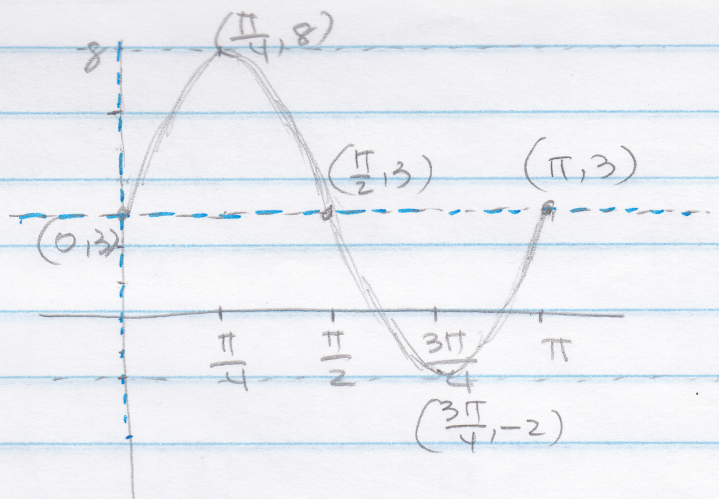 (π/4, 8)
8
(π/2, 3)
(π, 3)
(0, 3)
π/4
π/2
3π/4
π
(3π/4, -2)